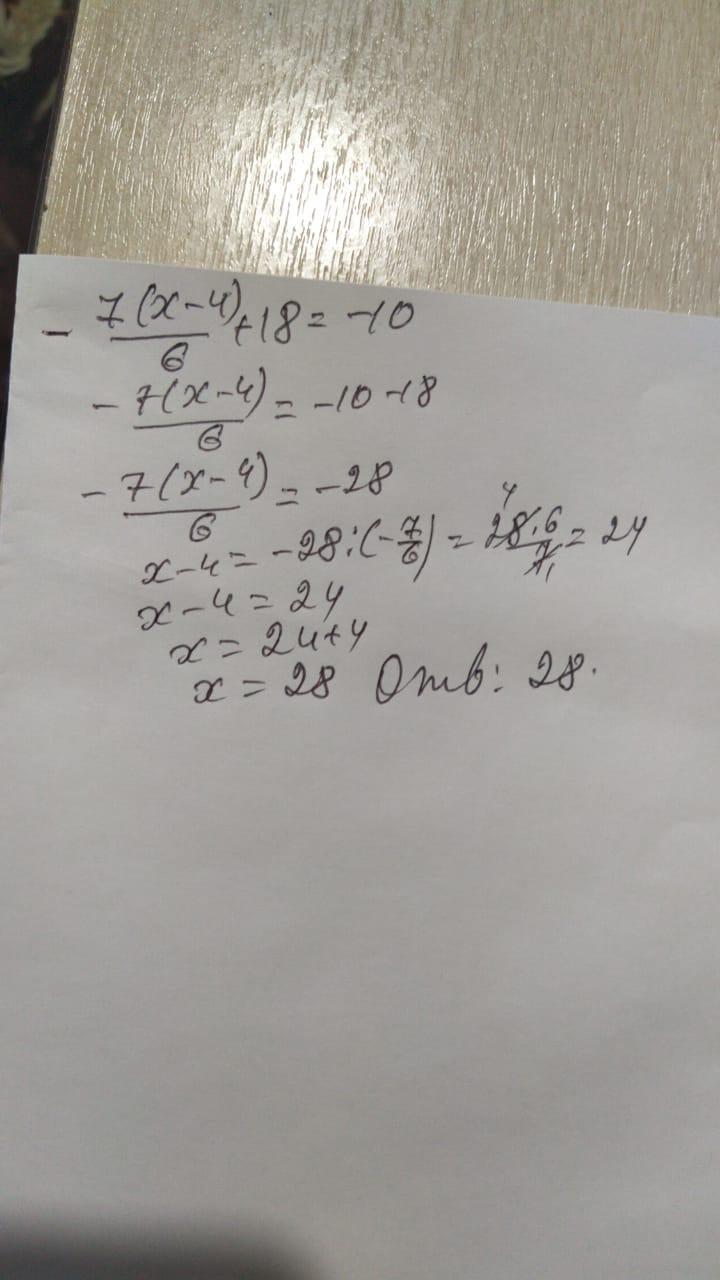 - 7(x-4)/6 +18 = -10
- 7(x-4)/6 = -10-18
- 7(x-4)/6 = -28
x-4 = -28:(-7/6) = 28·6/7 = 24
x-4 = 24
x = 24+4
x = 28 Отв: 28.